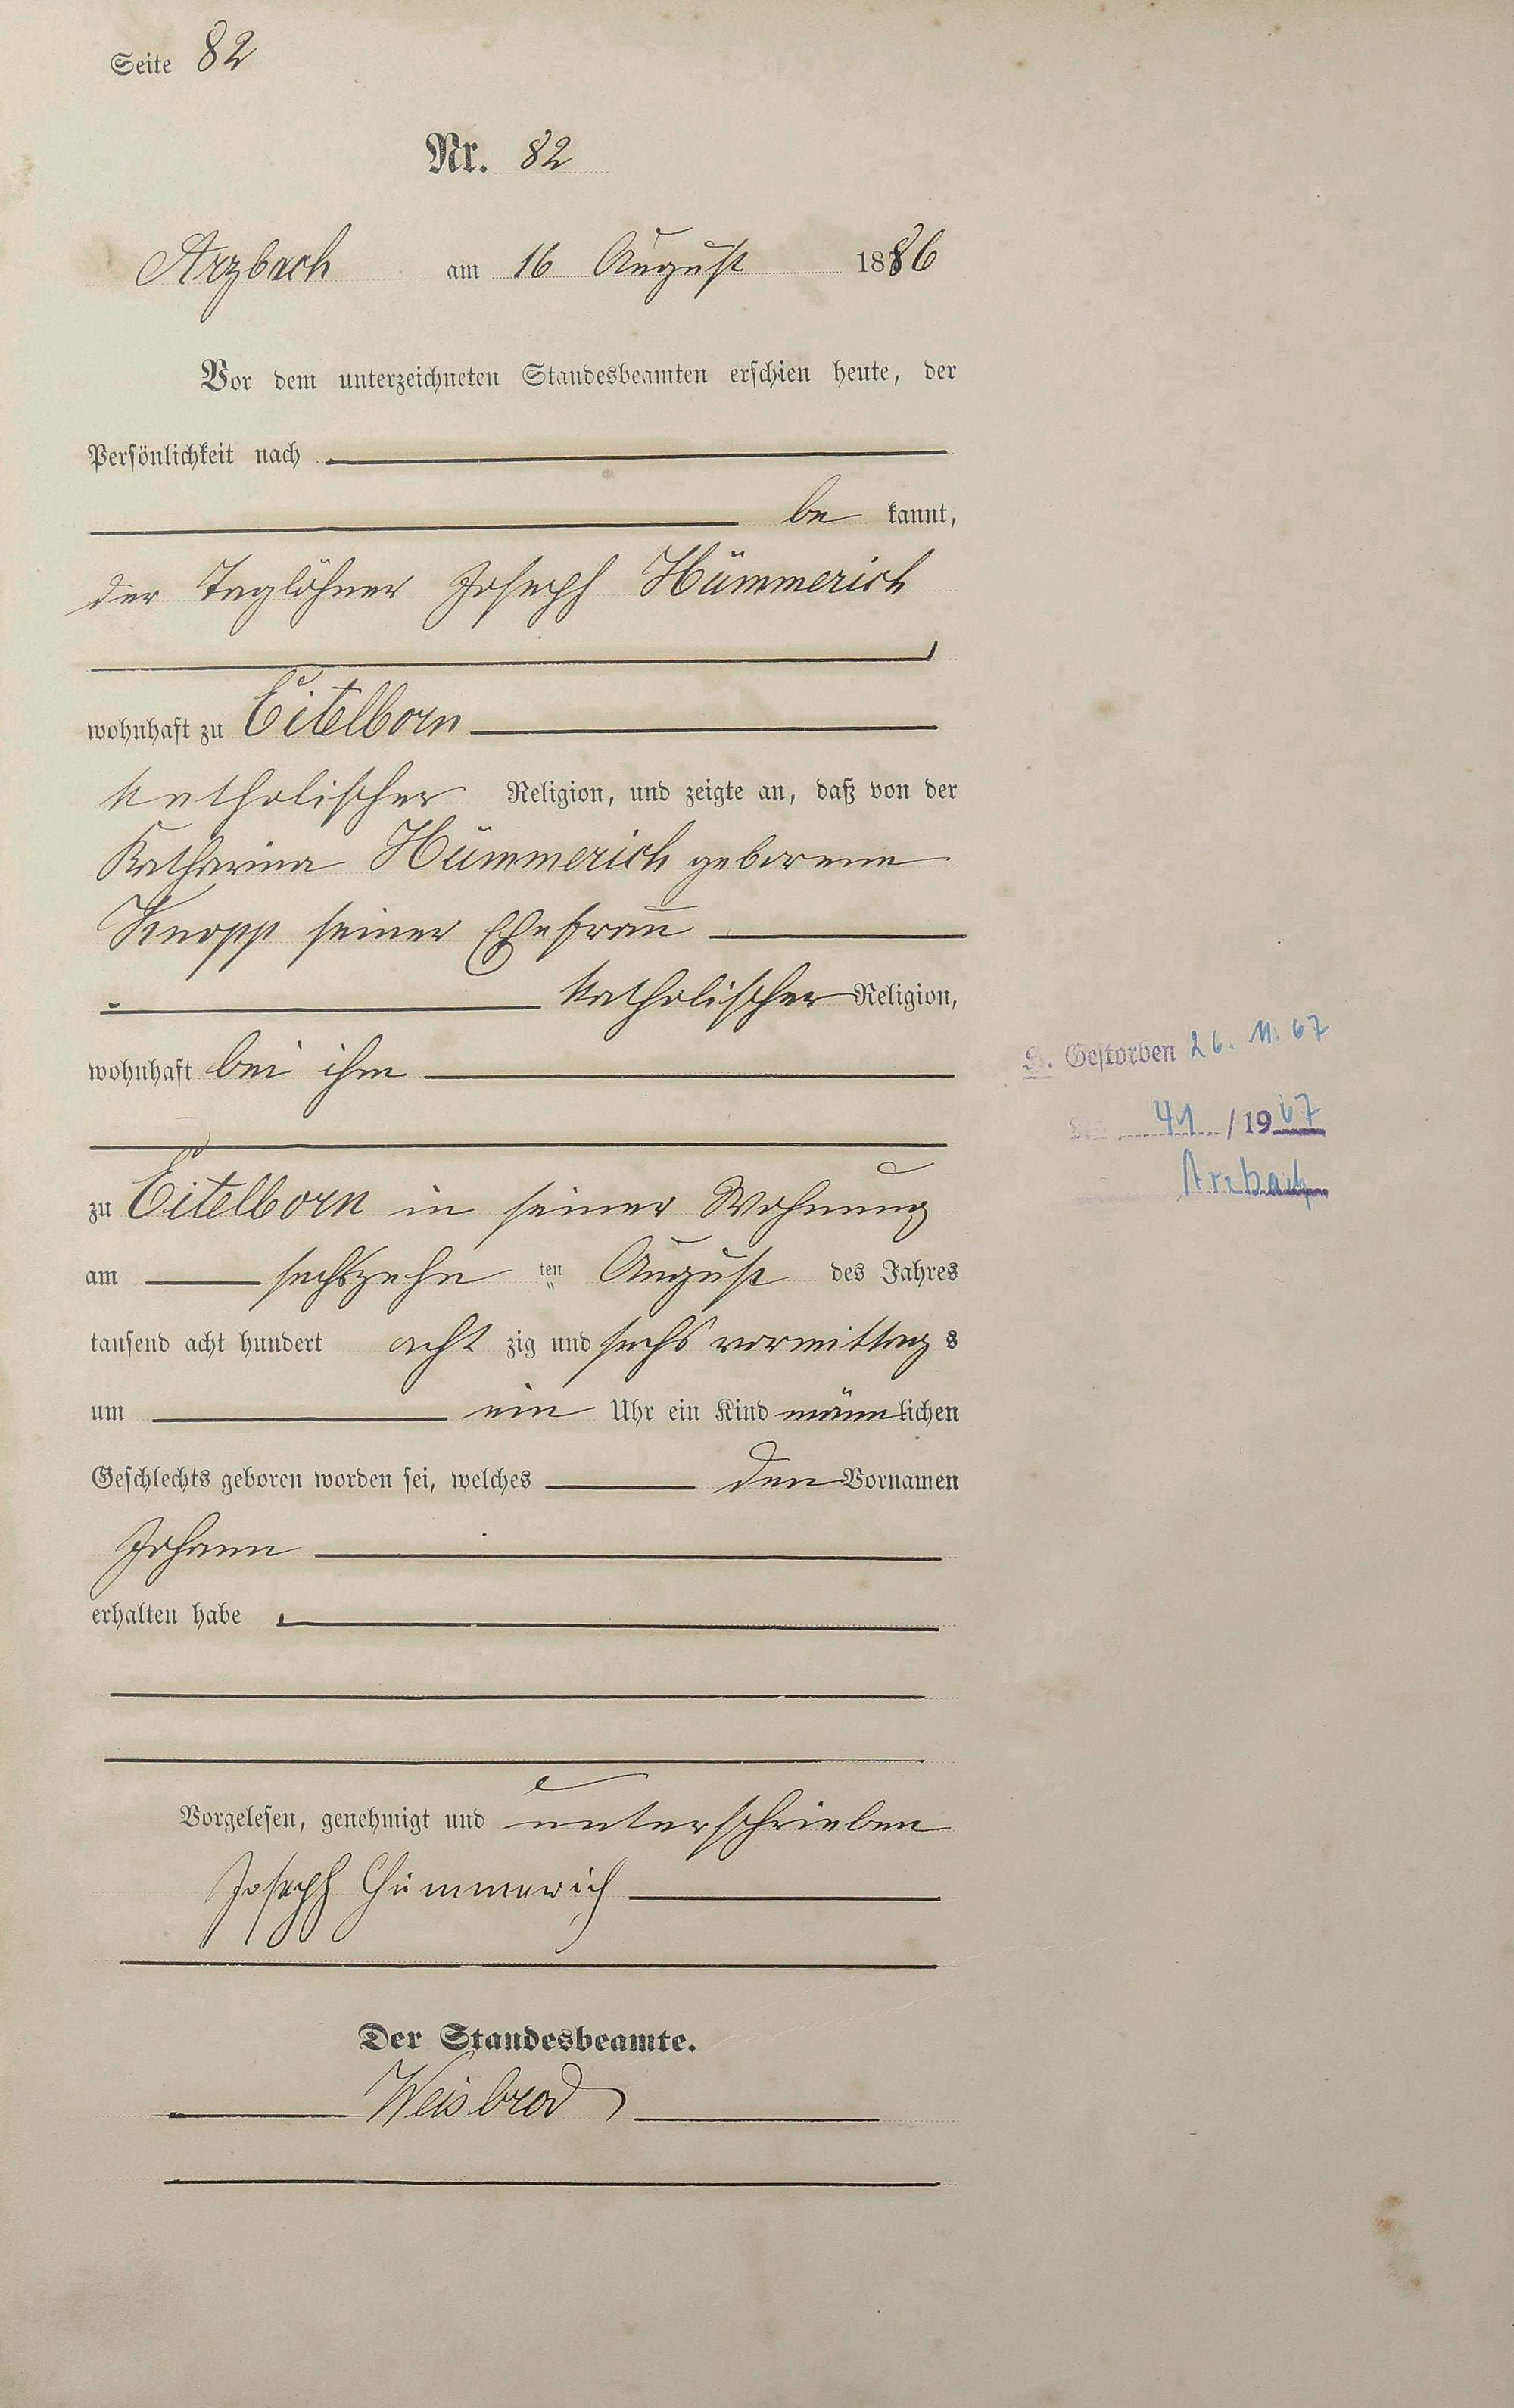 Seite 82
Nr. 82
Arzbach am 16 August 1886
Vor dem unterzeichneten Standesbeamten erschien heute, der
Persönlichkeit nach
be kannt,
der Taglöhner Joseph Hümmerich
,
wohnhaft zu Eitelborn
katholischer Religion, und zeigte an, daß von der
Katharina Hümmerich geborene
Knopp seiner Ehefrau
katholischer Religion,
wohnhaft bei ihm
zu Eitelborn in seiner Wohnung
am sechszehn ten August des Jahres
tausend acht hundert acht zig und sechs vormittag s
um ein Uhr ein Kind männlichen
Geschlechts geboren worden sei, welches den Vornamen
Johann
erhalten habe
Vorgelesen, genehmigt und unterschrieben
Joseph Hümmerich
Der Standesbeamte.
Weisbrod
Gestorben 26. 11. 67
41 / 1967
Arzbach